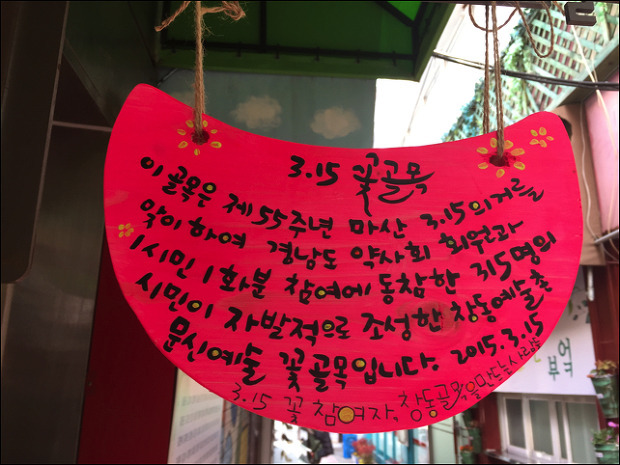 3.15 꽃골목
이 골목은 제55주년 마산 3.15의거를
맞이하여 경남도 약사회 회원과
1시민 1화분 참여에 동참한 315명의
시민이 자발적으로 조성한 창동예술촌
문신예술 꽃골목입니다. 2015.3.15
3.15 꽃 참여자, 창동골목을만드는사람들
부엌